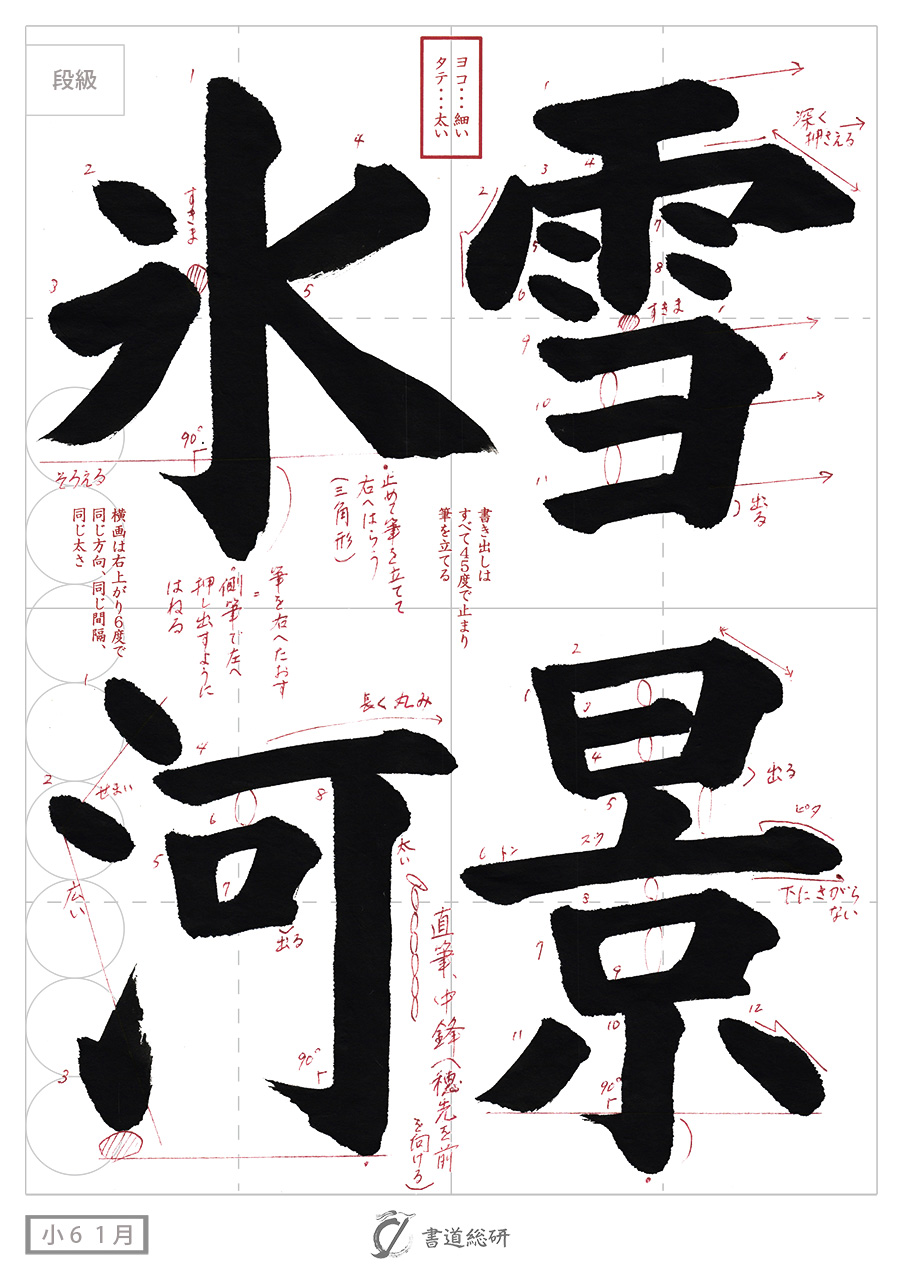 段級
ヨコ・・・細い
タテ・・・太い
雪景
氷河
深く
押さえる
すきま
出る
すきま
90°
そろえる
止めて筆を立てて
右へはらう
(三角形)
書き出しは
すべて45度で止まり
筆を立てる
横画は右上がり6度で
同じ方向、同じ間隔、
同じ太さ
筆を右へたおす
=
側筆で左へ
押し出すように
はねる
出る
ピタ
スウ
トン
下にさがら
ない
90°
長く丸み
せまい
広い
太い
出る
90°
直筆、中鋒(穂先を前
を向ける)
小6 1月
書道総研